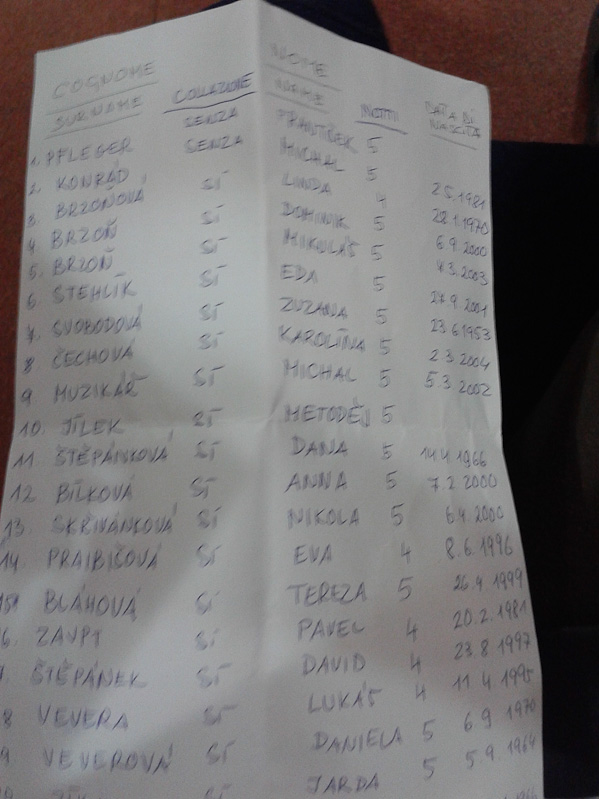 COGNOME NOME
SURNAME COLLAZIONE NAME NOTTI DATA DI NASCITA
1. PFLEGER SENZA FRANTIŠEK 5 2.5.1981
2. KONRÁD SENZA MICHAL 5 28.1.1970
3 BRZOŇOVÁ SÍ LINDA 4 6.9.2000
4. BRZOŇ SÍ DOMINIK 5 4.3.2003
5. BRZOŇ SÍ MIKULÁŠ 5 27.9.2001
6. STEHLÍK SÍ EDA 5 23.6.1953
7. SVOBODOVÁ SÍ ZUZANA 5 2.3.2004
8 ČECHOVÁ SÍ KAROLÍNA 5 5.3.2002
9 MUZIKÁŘ SÍ MICHAL 5
10. JÍLEK SÍ METODĚJ 5
11. ŠTĚPÁNKOVÁ SÍ DANA 5 14.4.1966
12 BÍLKOVÁ SÍ ANNA 5 7.2.2000
13. SKŘIVÁNKOVÁ SÍ NIKOLA 5 6.4.2000
14 PRAIBIŠOVÁ SÍ EVA 4 8.6.1996
15 BLÁHOVÁ SÍ TEREZA 5 26.4.1999
6. ZAVPT SÍ PAVEL 4 20.2.1981
ŠTĚPÁNEK SÍ DAVID 4 23.8.1997
8 VEVERA SÍ LUKÁŠ 4 11.4.1995
9 VEVEROVÁ SÍ DANIELA 5 6.9.1970
SÍ JARDA 5 5.9.1964